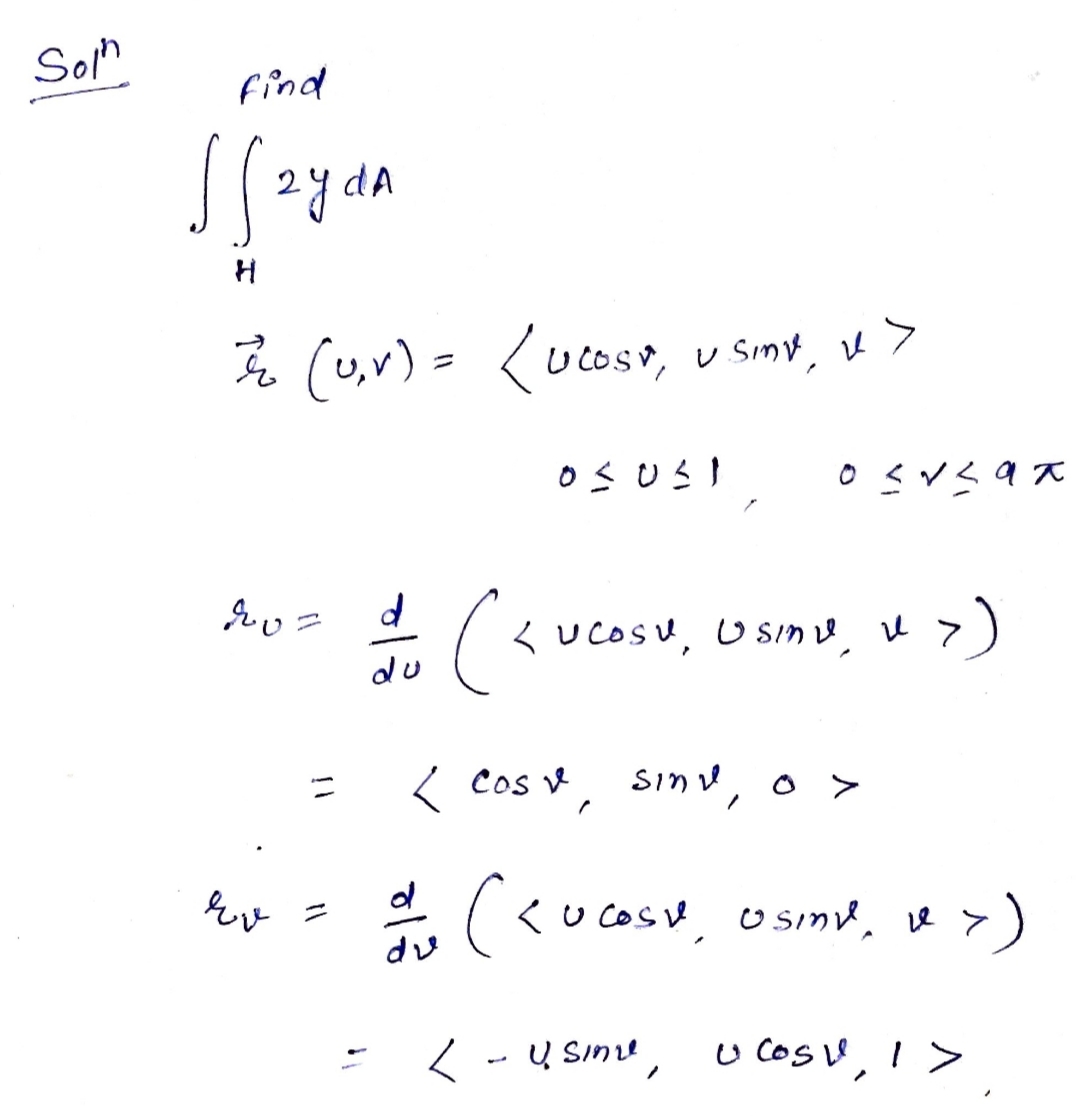 Solⁿ
Find
∫∫ 2y dA
H
r⃗ (u,v) = < u cos v, u sin v, v >
0 ≤ u ≤ 1, 0 ≤ v ≤ 9π
r_u = d/du ( < u cos v, u sin v, v > )
= < cos v, sin v, 0 >
r_v = d/dv ( < u cos v, u sin v, v > )
= < - u sin v, u cos v, 1 >,